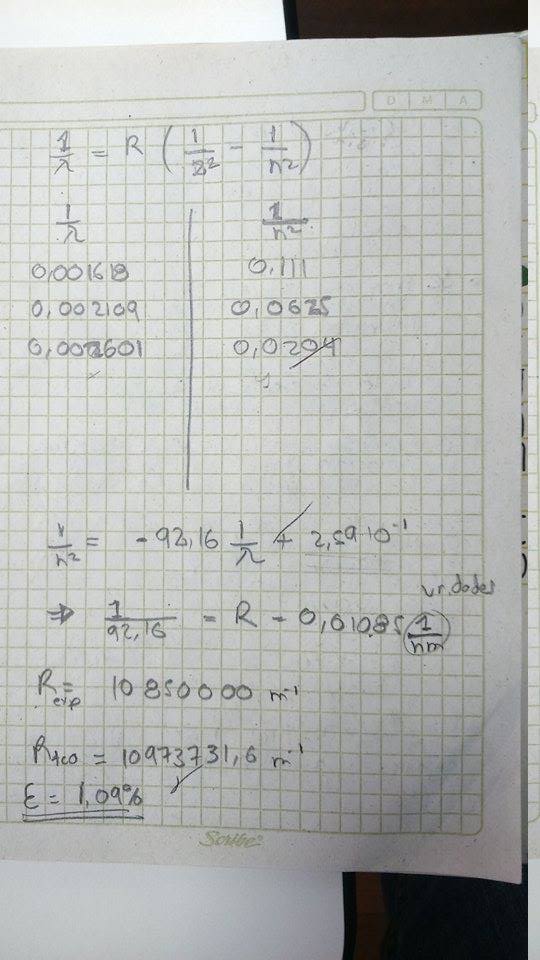 D M A
1/λ = R (1/2² - 1/n²)
1/λ | 1/n²
0,001618 | 0.111
0,002109 | 0,0625
0,002601 | 0,0204
1/n² = - 92,16 1/λ + 2,59·10⁻¹
⇒ 1/92,16 = R = 0,01085 1/nm
R exp = 10 850 000 m⁻¹
R = 10973731,6 m⁻¹
ε = 1,09%
Scribe